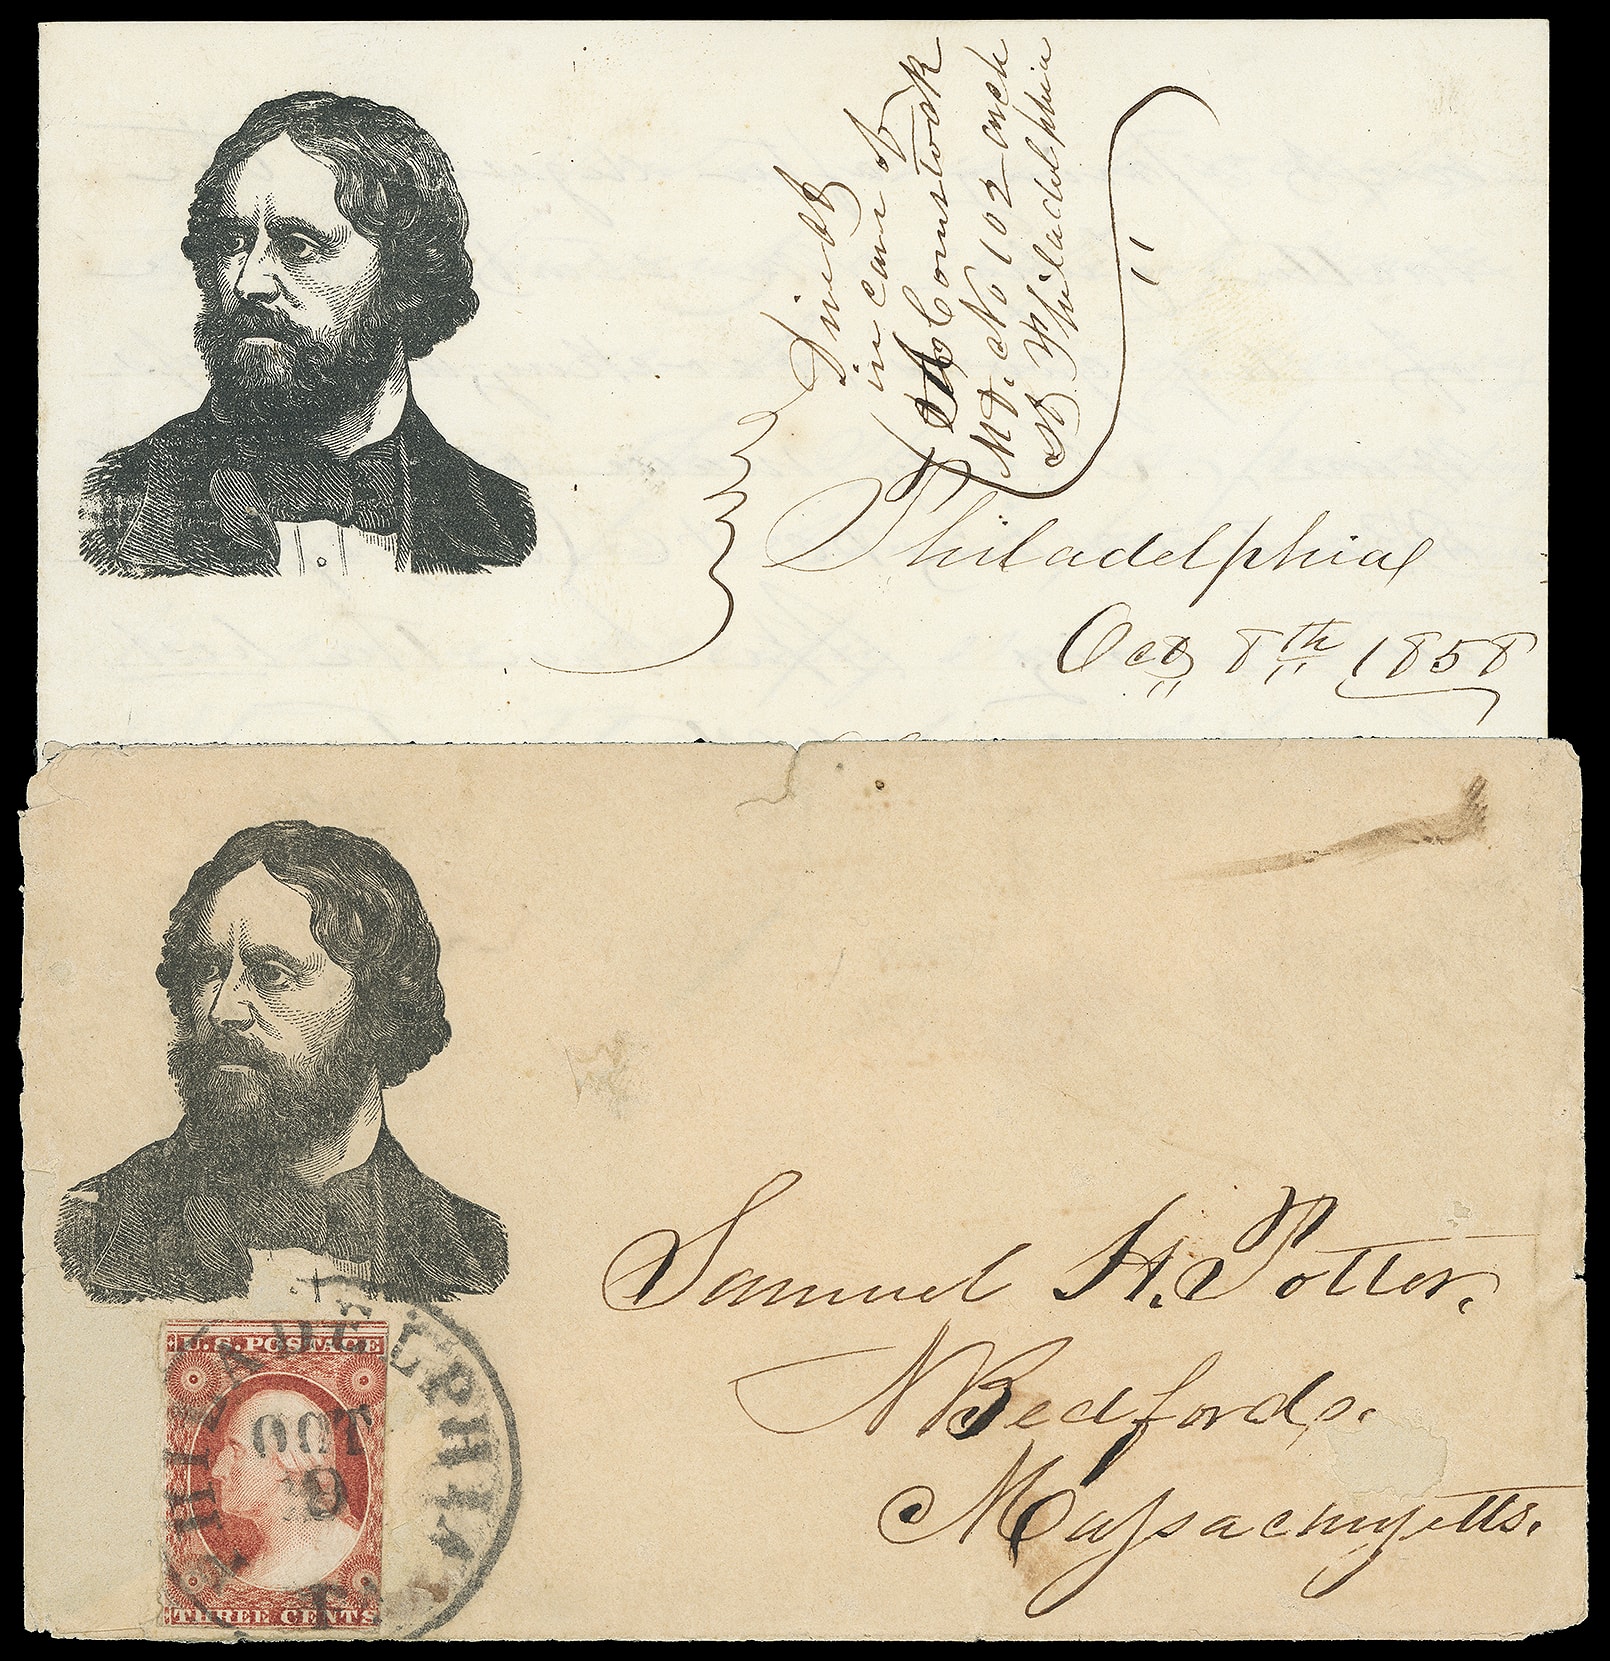 Direct
in care of
A. Comstock
M.D. No 102 arch
St Philadelphia
Philadelphia
Oct 8th 1858
Samuel H. Potter.
N Bedford.
Massachusetts.
U.S. POSTAGE
THREE CENTS
PHILADELPHIA
OCT
9